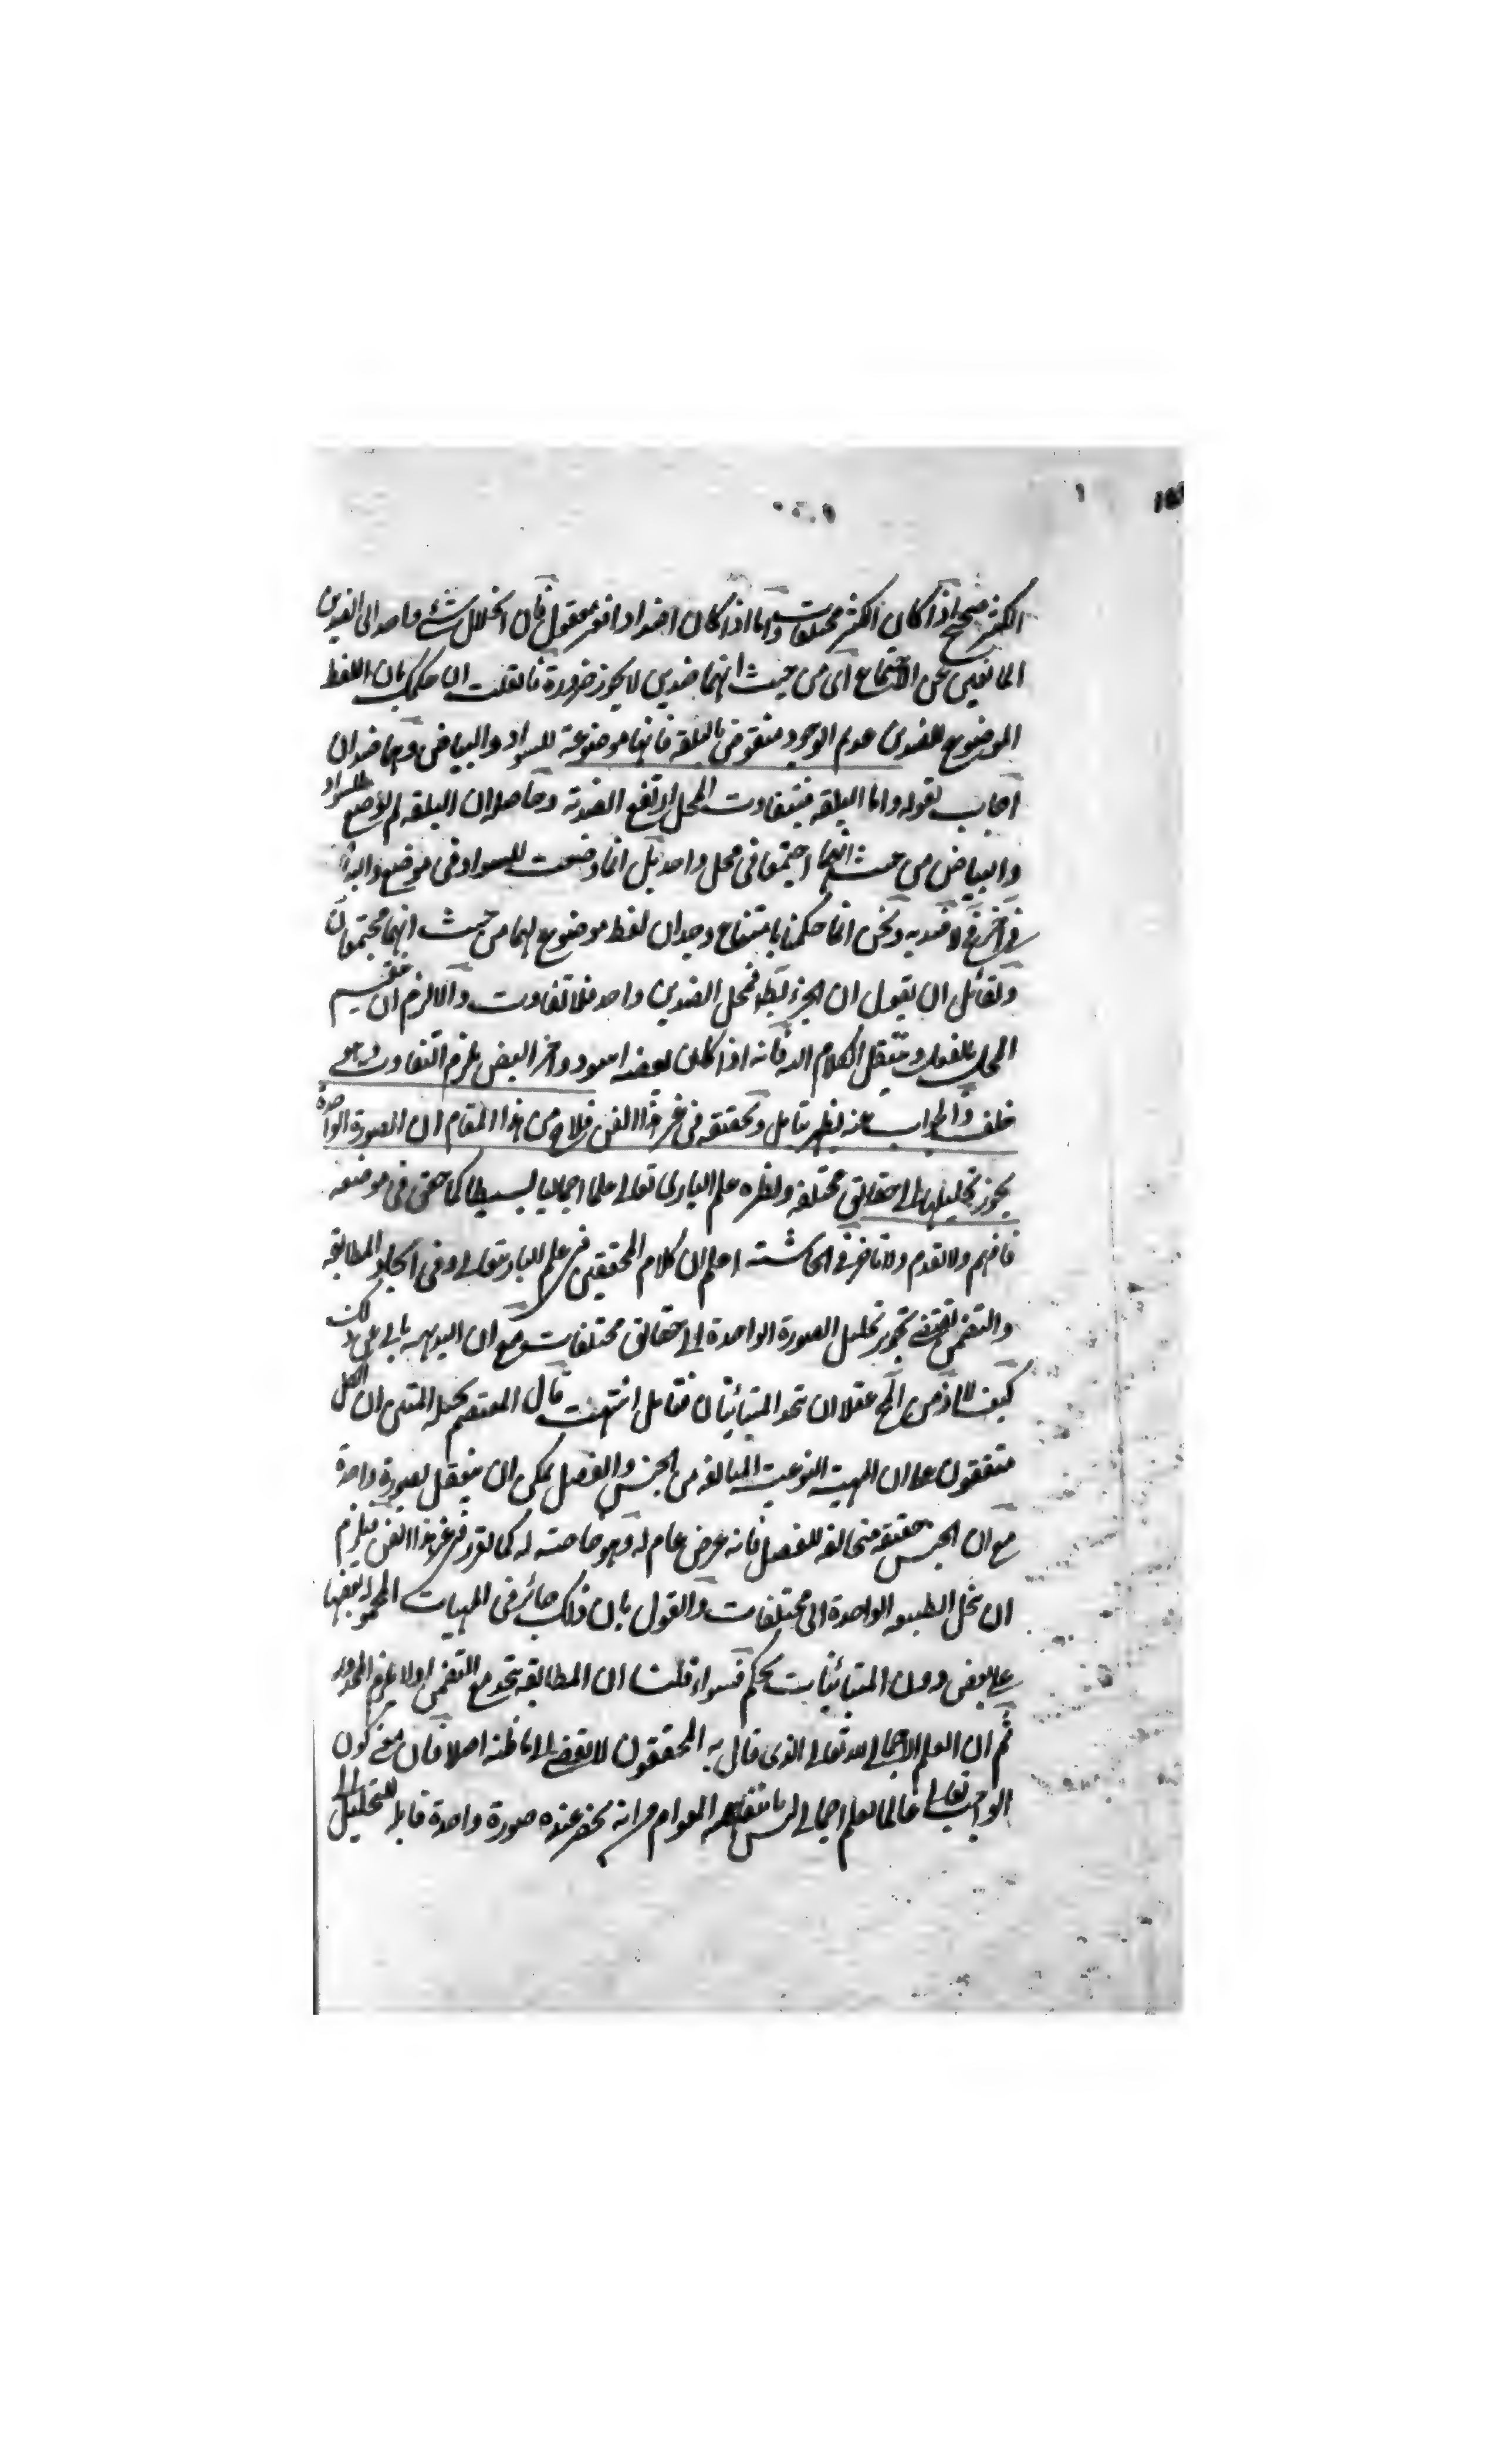 الكثير صحيح اذا كان الكثير مختلفات واما اذا كان اضدادا فغير معقول فان انحلال شئ واحد الى الضدين
المانعين عن الاجتماع اى من حيث انهما ضدين لا يجوز ضرورة فان قلت ان حكمك بان اللفظ
الموضوع للضدين عديم الوجود منقوض بالبلقة فانها موضوعة للسواد والبياض وهما ضدان
اجاب بقوله واما البلقة فبتفاوت المحل ارتفع الضدية وحاصله ان البلقة لم توضع للسواد
والبياض من حيث انهما اجتمعا فى محل واحد بل انما وضعت للسواد فى موضع والبياض
فى آخر فلا ضدية ونحن انما حكمنا بامتناع وجدان لفظ موضوع لهما من حيث انهما مجتمعان
ولقائل ان يقول ان الجزء فمحل الضدين واحد فلا تفاوت والا لزم ان ينقسم
المحل بالفعل وننقل الكلام اليه فانه اذا كان بعضه اسود وآخر ابيض يلزم التفاوت وهو
خلف والجواب عنه يظهر بتامل وتحقيقه فى غير هذا الفن فلاح من هذا المقام ان الصورة الواحدة
يجوز تحليلها الى حقائق مختلفة ونظيره علم البارى تعالى علما اجماليا بسيطا كما حقق فى موضعه
فافهم ولا تقدم ولا تاخر فى الحاشية اعلم ان كلام المحققين فى علم البارى تعالى وفى اتحاد المطابقة
والتضمن يقتضى تجويز تحليل الصورة الواحدة الى حقائق مختلفات مع ان البديهة يابى عن ذلك
كيف لا اذ من المح عقلا ان يتحد المتبائنان فتامل انتهت قال المعتصم بحبله المتين ان الكل
متفقون على ان المهية النوعية المتالفة من الجنس والفصل يمكن ان يتعقل بصورة واحدة
مع ان الجنس حقيقة متخالفة للفصل فانه عرض عام له وهو خاصة له كما تقرر فى غير هذا الفن فيلزم
ان تحل الطبيعة الواحدة الى مختلفات والقول بان ذلك جائز فى المهيات المحمولة بعضها
على بعض دون المتبائنات تحكم فسواء قلنا ان المطابقة يتحد مع التضمن اولا يلزم المحذور
ثم ان العلم الاجمالى لله تعالى الذى قال به المحققون لا يفضى الى ما ظنه اصلا فان معنى كون
الواجب تعالى عالما بعلم اجمالى ليس ما تفهمه العوام من انه يحضر عنده صورة واحدة قابلة للتحليل الى